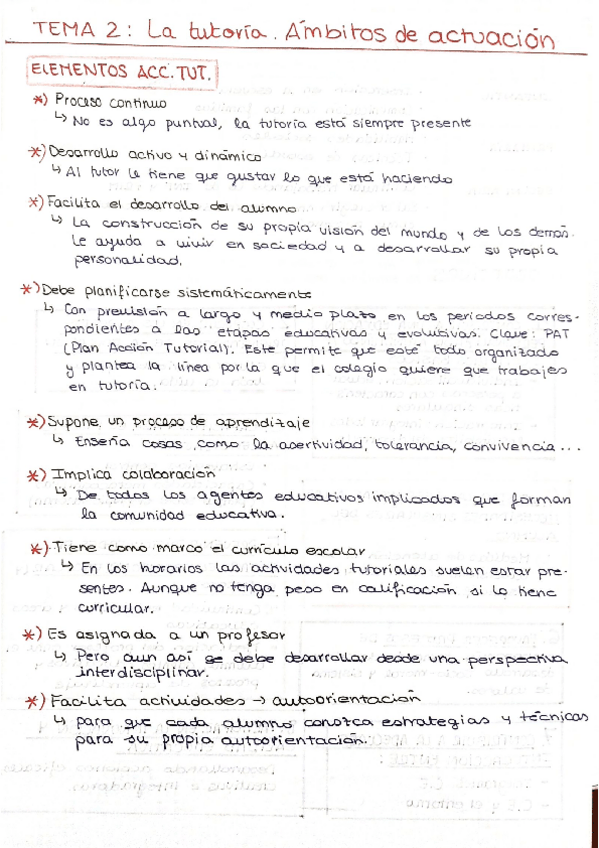 TEMA 2: La tutoría. Ámbitos de actuación
ELEMENTOS ACC. TUT.
*) Proceso continuo
↳ No es algo puntual, la tutoría está siempre presente
*) Desarrollo activo y dinámico
↳ Al tutor le tiene que gustar lo que está haciendo
*) Facilita el desarrollo del alumno
↳ La construcción de su propia visión del mundo y de los demás.
Le ayuda a vivir en sociedad y a desarrollar su propia
personalidad.
*) Debe planificarse sistemáticamente
↳ Con previsión a largo y medio plazo en los periodos corres-
pondientes a las etapas educativas y evolutivas. Clave: PAT
(Plan Acción Tutorial). Este permite que esté todo organizado
y plantea la línea por la que el colegio quiere que trabajes
en tutoría.
*) Supone un proceso de aprendizaje
↳ Enseña cosas como la asertividad, tolerancia, convivencia...
*) Implica colaboración
↳ De todos los agentes educativos implicados que forman
la comunidad educativa.
*) Tiene como marco el currículo escolar
↳ En los horarios las actividades tutoriales suelen estar pre-
sentes. Aunque no tenga peso en calificación si lo tiene
curricular.
*) Es asignada a un profesor
↳ Pero aun así se debe desarrollar desde una perspectiva
interdisciplinar.
*) Facilita actividades → autoorientación
↳ para que cada alumno conozca estrategias y técnicas
para su propia autoorientación.